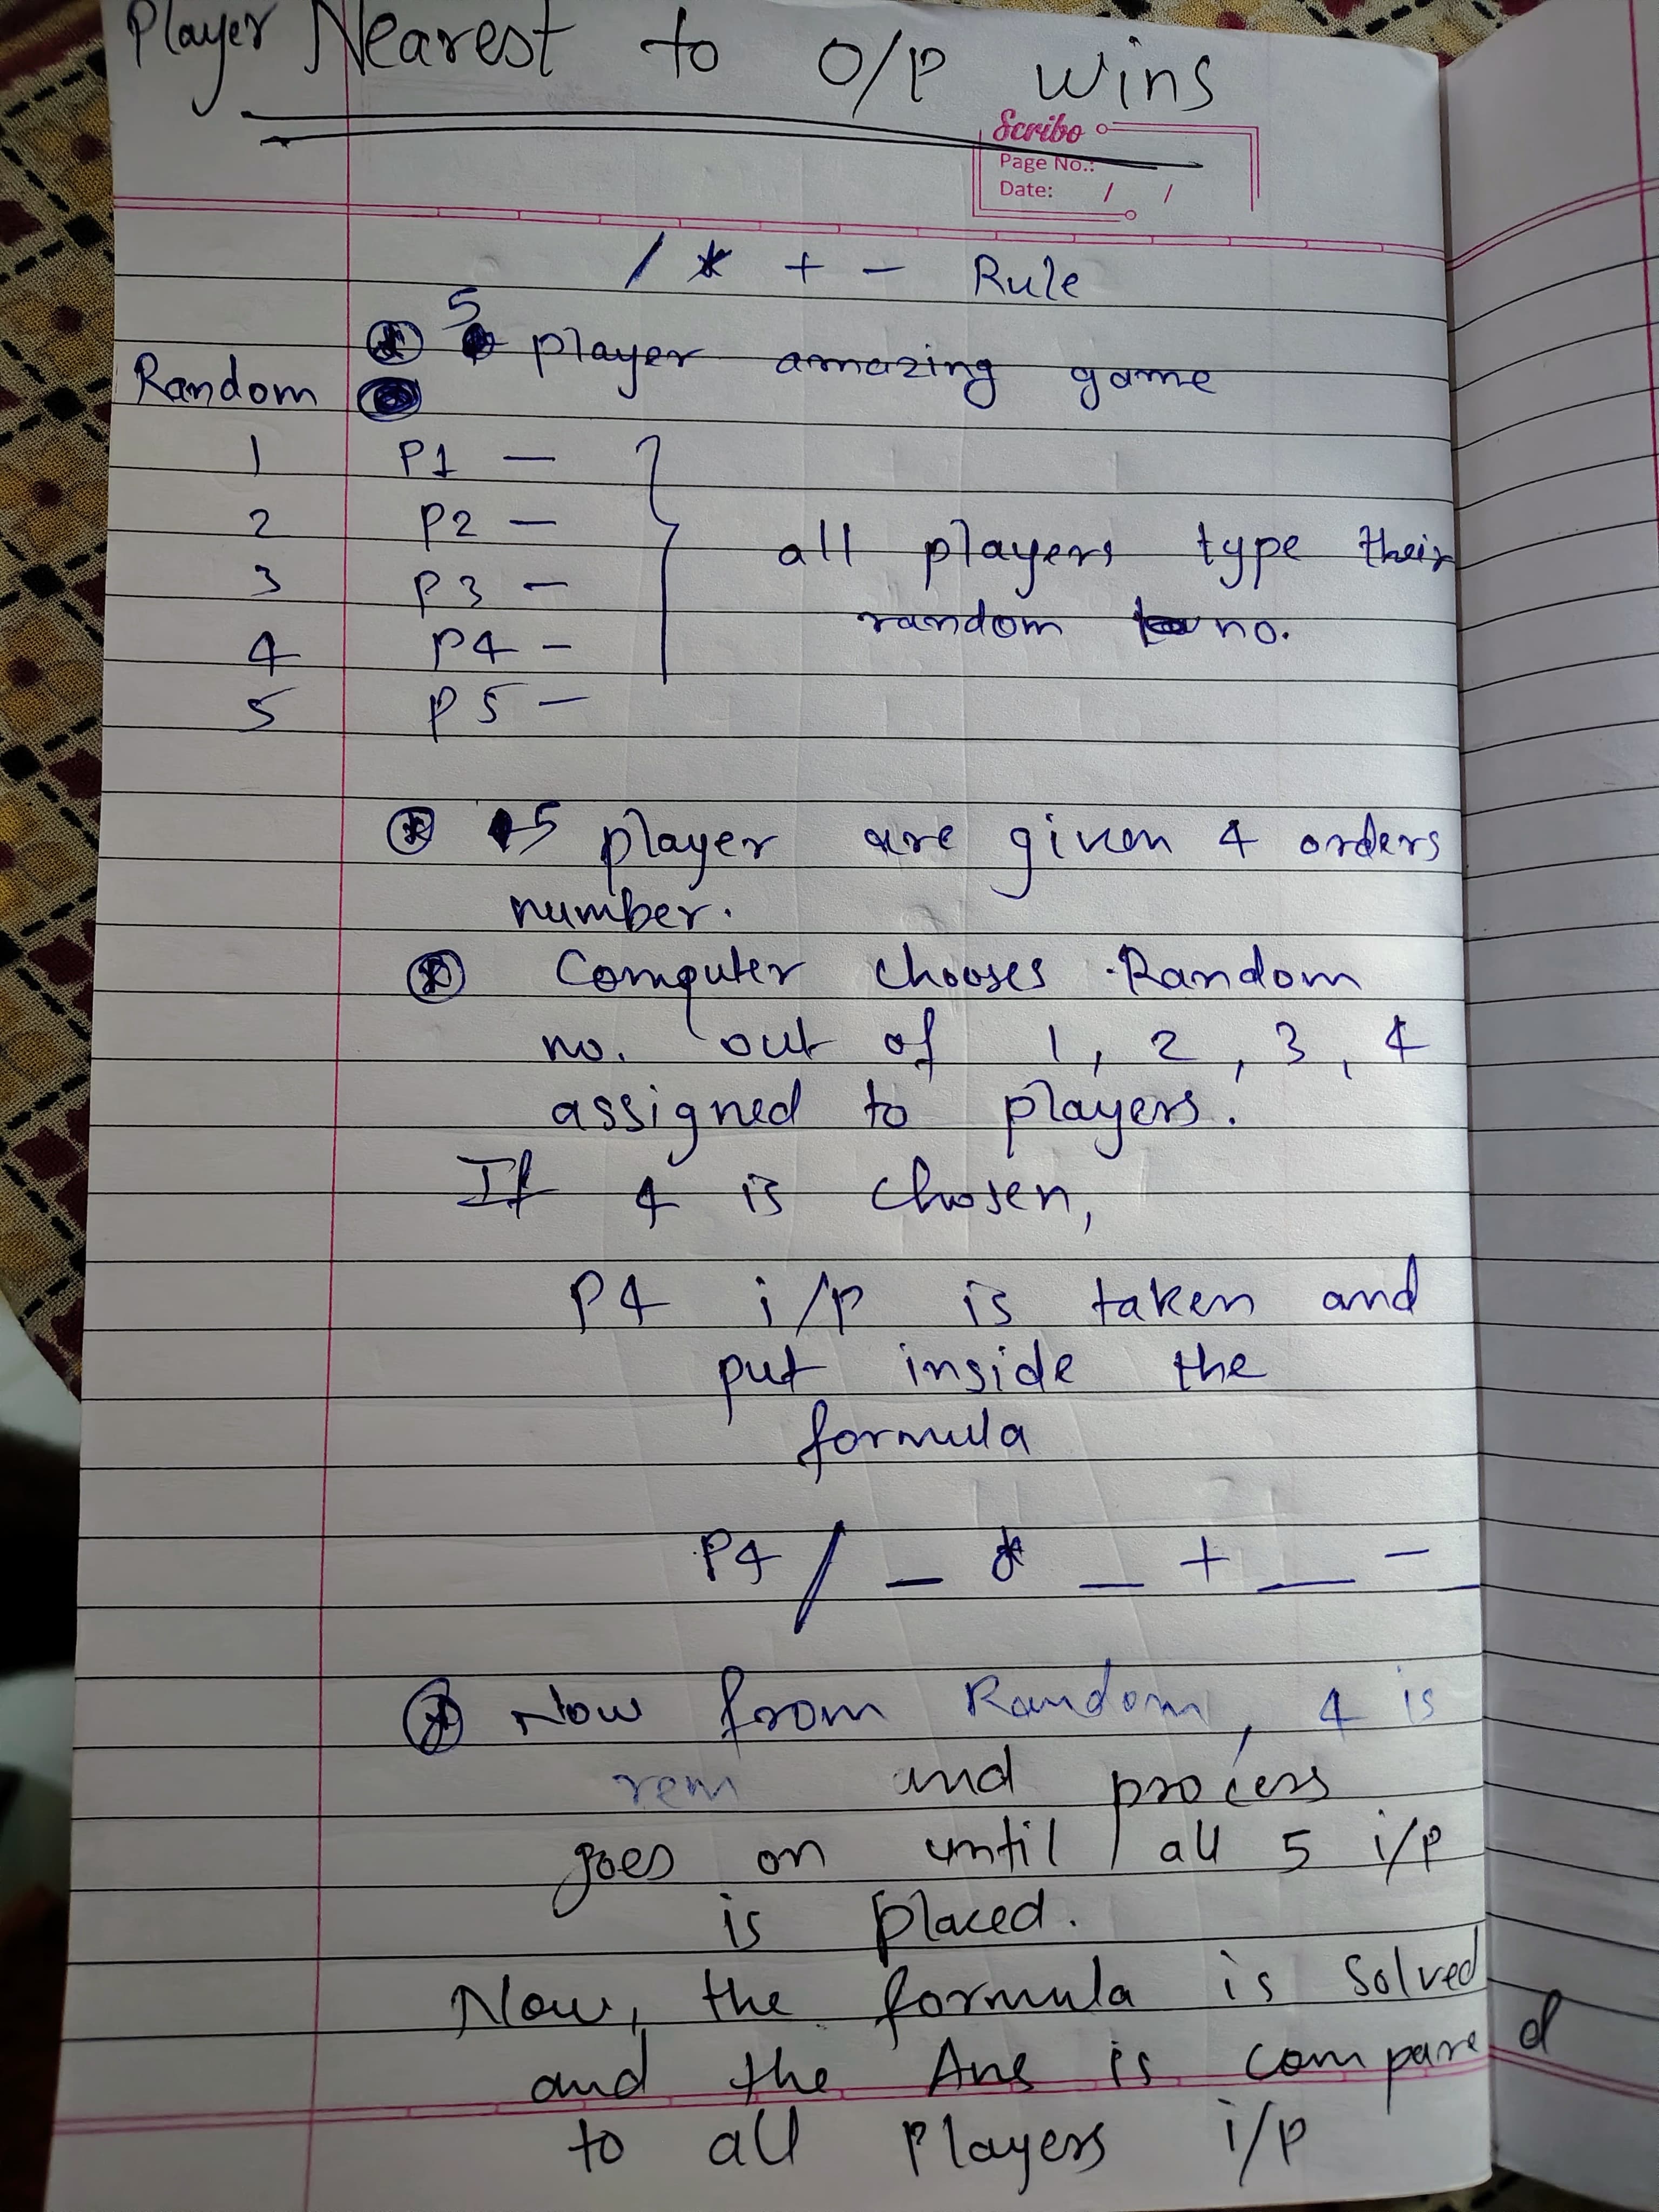 Player Nearest to O/P wins
Scribo
Page No.:
Date: / /
/ * + - Rule
5 player amazing game
Random
1 P1 —
2 P2 —
3 P3 —
4 P4 -
5 P5 —
all players type their
random no.
5 player are given 4 orders
number.
Computer chooses Random
no. out of 1, 2, 3, 4
assigned to players.
If 4 is chosen,
P4 i/p is taken and
put inside the
formula
P4 / _ * _ + _ - _
Now from Random, 4 is
rem and process
goes on until all 5 i/p
is placed.
Now, the formula is solved
and the Ans is compared
to all Players i/p